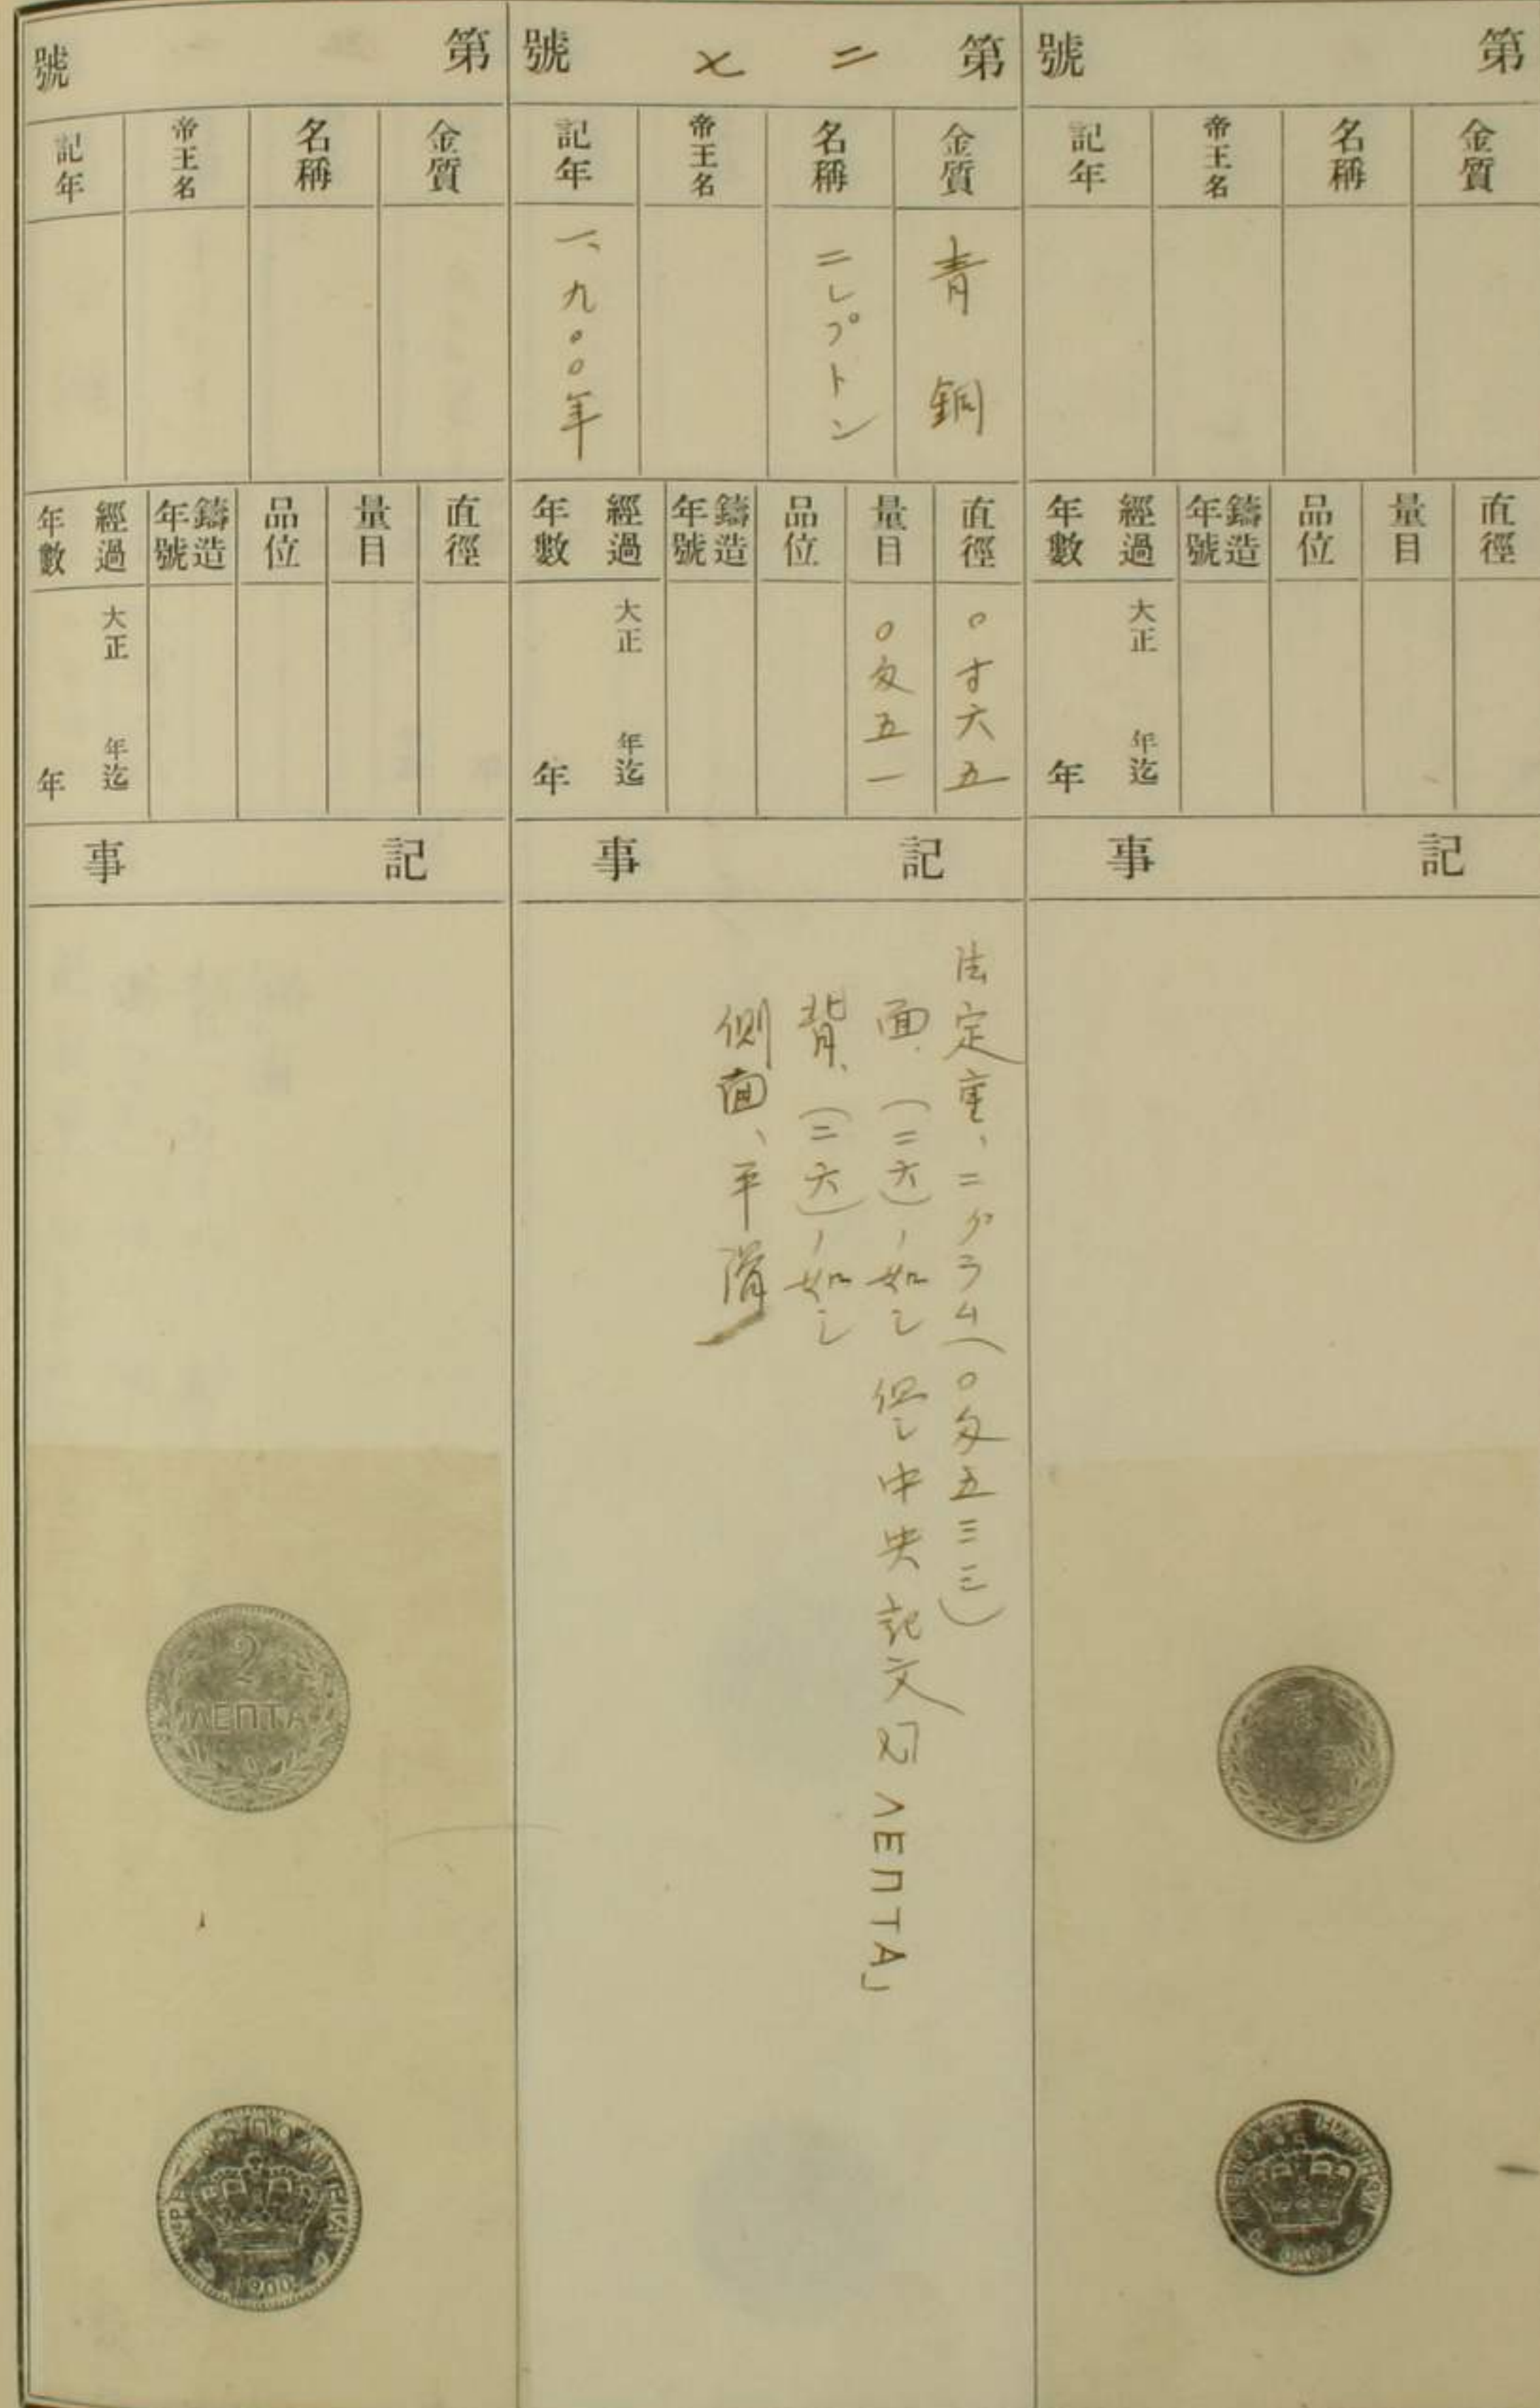 第 號
金質
名稱
帝王名
記年
直徑
量目
品位
鑄造年號
經過年數
大正 年迄
年
記事
第二七號
金質
青銅
名稱
二レプトン
帝王名
記年
一、九〇〇年
直徑
〇寸六五
量目
〇匁五一
品位
鑄造年號
經過年數
大正 年迄
年
記事
法定重、二グラム(〇匁五三三)
面、(二六)ノ如シ 但シ中央記文ハ「2 ΛΕΠΤΑ」
背、(二六)ノ如シ
側面、平滑
第 號
金質
名稱
帝王名
記年
直徑
量目
品位
鑄造年號
經過年數
大正 年迄
年
記事
2
ΛΕΠΤΑ
1900